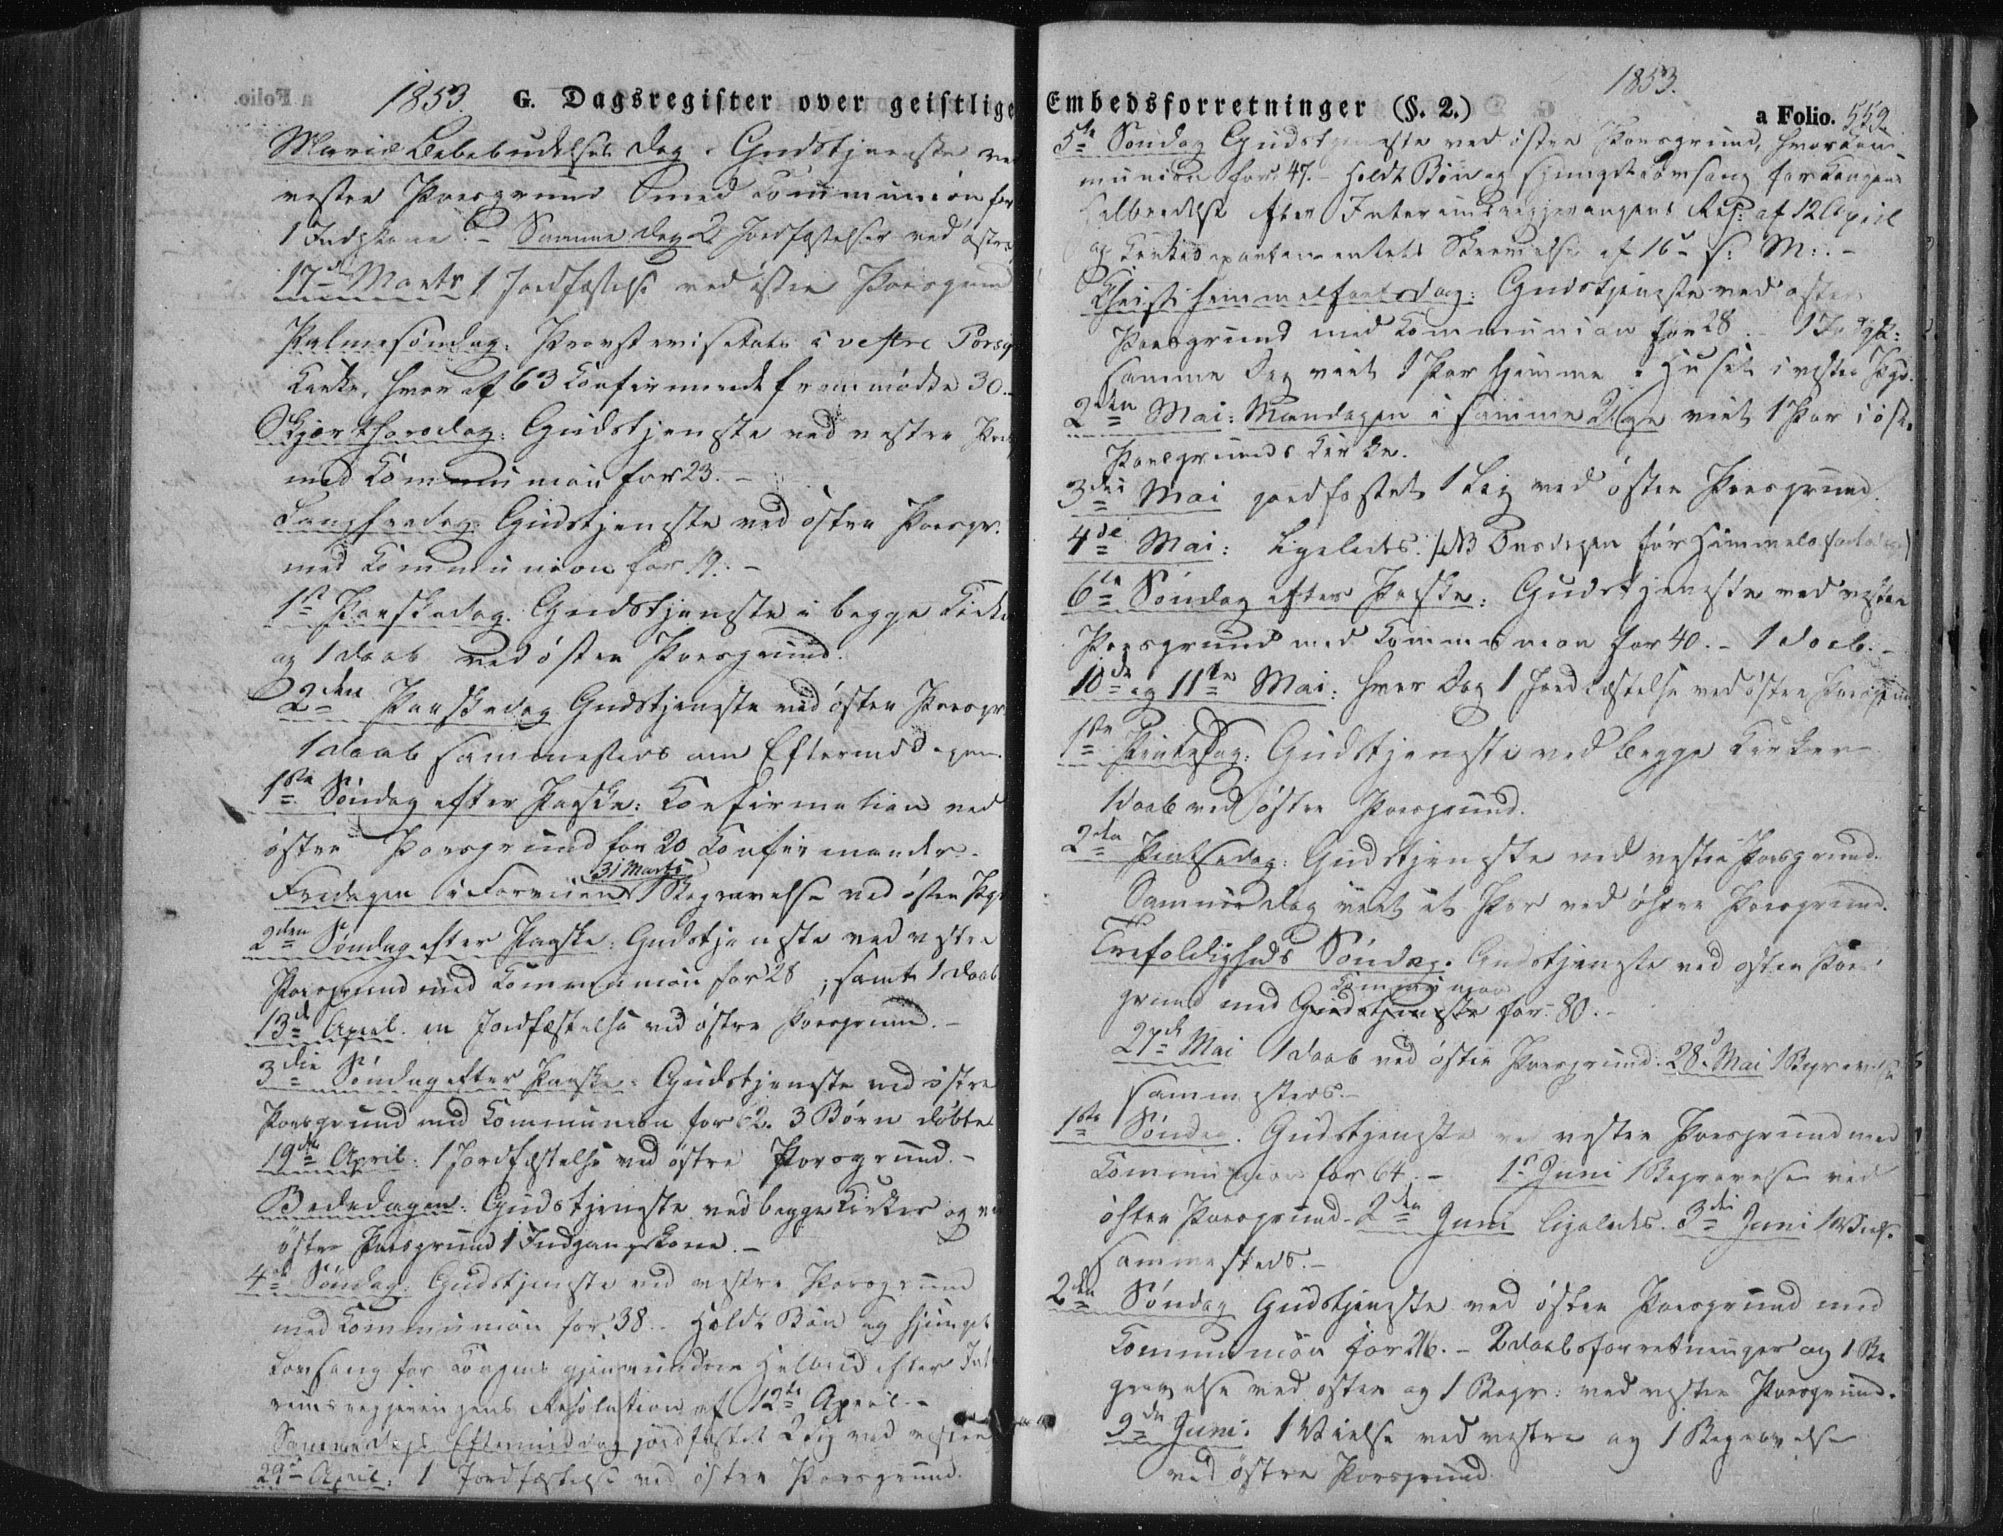 1853. G. Dagsregister over geistlige
Mariæ Bebudelses Dag. Gudstjeneste
vestre Porsgrund med Communion for
1 Indgkone. – Samme Dag 2 Jordfæstelser ved østre
17de Marts 1 Jordfæstelse ved østre Porsgrund
Palmesøndag: Provstevisitats i vestre Porsg
Kirke, hvor af 63 Confirmerede fremmødte 30.
Skjærthorsdag: Gudstjeneste ved vestre
med Communion for 23. –
Langfredag: Gudstjeneste ved østre Porsgr.
med Communion for 19. –
1ste Paaskedag. Gudstjeneste i begge Kirker
og 1 Daab ved østre Porsgrund.
2den Paaskedag Gudstjeneste ved østre Porsgr
1 Daab sammesteds om Eftermiddagen.
1ste Søndag efter Paaske: Confirmation ved
østre Porsgrund for 20 Confirmander. –
31 Marts
Fredagen i Forveien 1 Begravelse ved østre Psgr
2den Søndag efter Paaske: Gudstjeneste ved vestre
Porsgrund med Communion for 28, samt 1 Daab
13de April. en Jordfæstelse ved østre Porsgrund. –
3die Søndag efter Paaske. Gudstjeneste ved østre
Porsgrund med Communion for 62. 3 Børn døbte
19de April: 1 Jordfæstelse ved østre Porsgrund. –
Bededagen: Gudstjeneste ved begge Kirker og
østre Porsgrund 1 Indgangskone. –
4de Søndag: Gudstjeneste ved vestre Porsgrund
med Communion for 38. – Holdt Bøn og sjunget
Lovsang for Kongens gjenvundne Helbred efter Int
rimsregjeringens Resolution af 12te April. –
Sammedags Eftermiddag jordfæstet 2 Lig ved vestre
29de April: 1 Jordfæstelse ved østre Porsgrund.
1853.
Embedsforretninger (§. 2.) a Folio. 559.
5te Søndag Gudstjeneste ved østre Porsgrund, hvor Com
munion for 47. – Holdt Bøn og sjunget Lovsang for Kongens
Helbredelse efter Interimsregjeringens Res: af 12 April
og Kirkedepartementets Skrivelse af 16de s. M:. –
Christi Himmelfartsdag: Gudstjeneste ved østre
Porsgrund med Communion for 28. – 1 Indgk:
samme Dag viet 1 Par hjemme i Huset i vestre Psgr.
2den Mai: Mandagen i samme Uge viet 1 Par i øst.
Porsgrunds Kirke.
3die Mai jordfæstet 1 Lig ved østre Porsgrund.
4de Mai: Ligeledes. (NB Onsdagen før Himmelsfartsdag)
6te Søndag efter Paaske: Gudstjeneste ved vestre
Porsgrund med Communion for 40. – 1 Daab. –
10de og 11te Mai: hver Dag 1 Jordfæstelse ved østre Porsgrund
1ste Pintsedag: Gudstjeneste ved begge Kirker –
1 Daab ved østre Porsgrund.
2den Pintsedag: Gudstjeneste ved vestre Porsgrund.
Samme Dag viet et Par ved østre Porsgrund.
Trefoldigheds Søndag. Gudstjeneste ved østre Pors
Communion
grund med Gudstjeneste for 80. –
27de Mai 1 Daab ved østre Porsgrund. 28de Mai 1 Begravelse
sammesteds. –
1ste Søndag. Gudstjeneste ved vestre Porsgrund med
Communion for 64. – 1ste Juni 1 Begravelse ved
østre Porsgrund. 2den Juni ligeledes. 3die Juni 1 Viels.
sammesteds. –
2den Søndag Gudstjeneste ved østre Porsgrund med
Communion for 26. – 2 Daabsforretninger og 1 Be
gravelse ved østre og 1 Begr: ved vestre Porsgrund.
9de Juni: 1 Vielse ved vestre og 1 Begravelse
ved østre Porsgrund